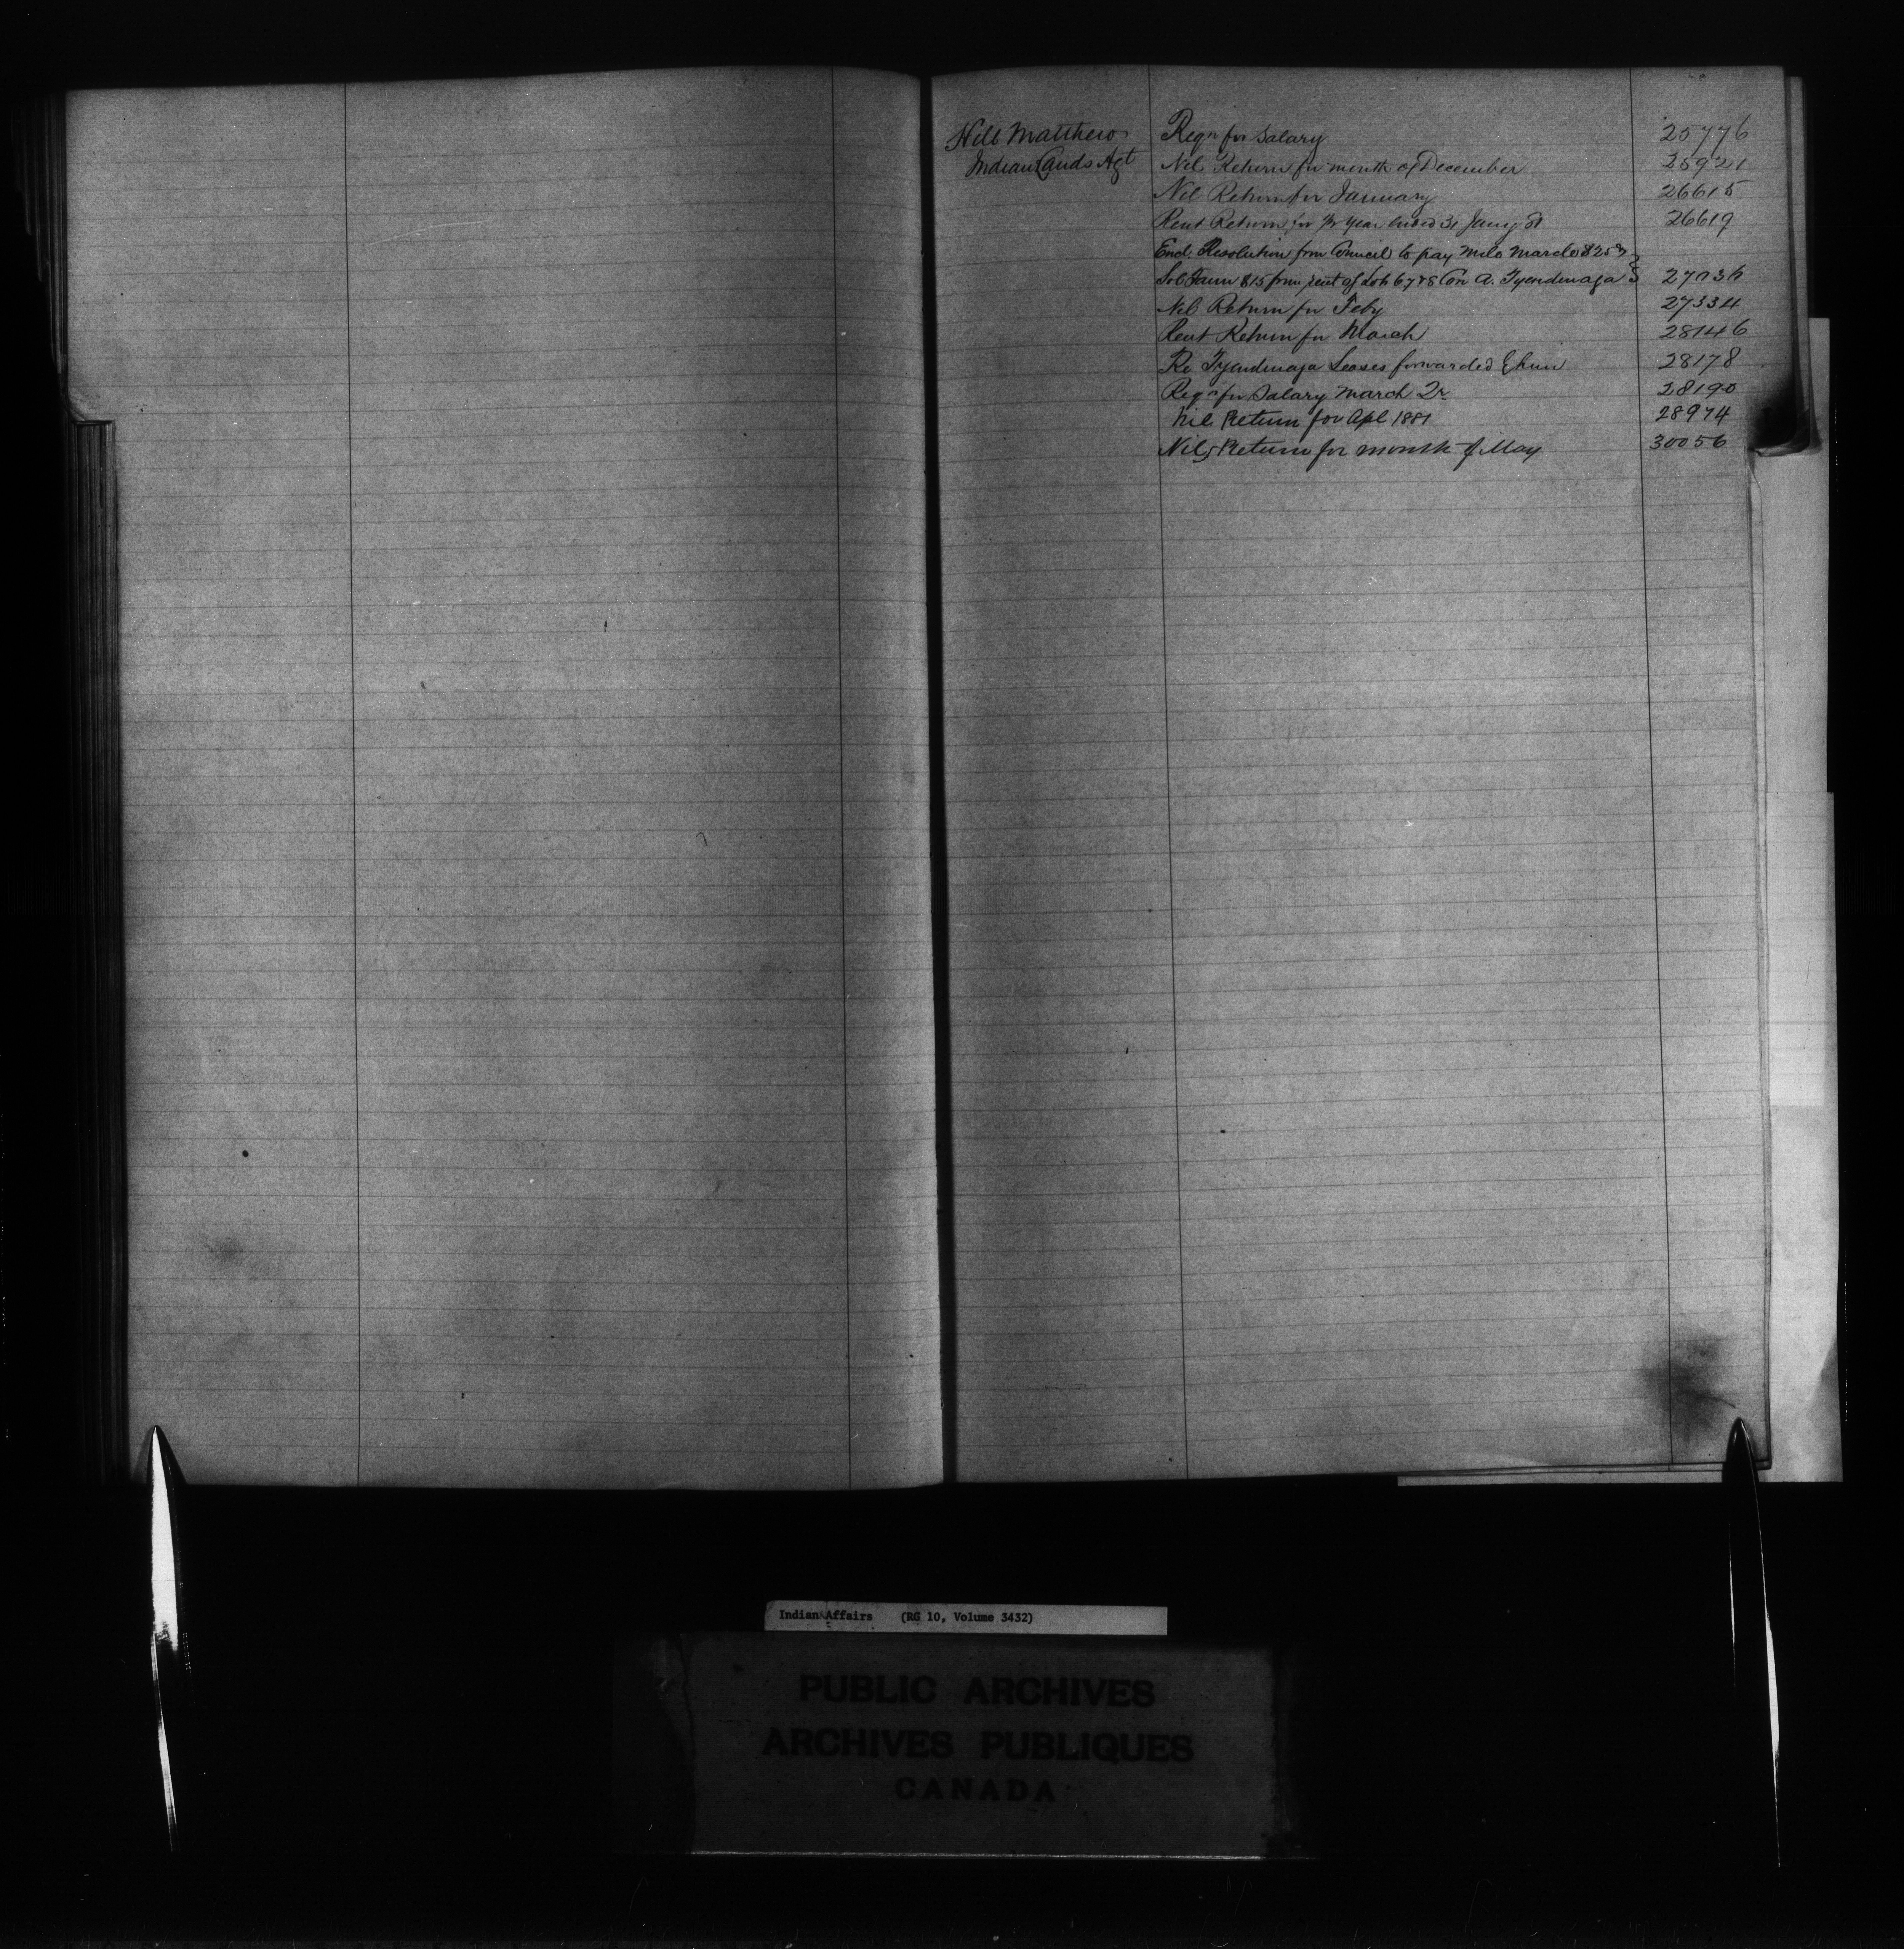 Hill Matthew Reqn for Salary 25776
Indian Lands Agt Nil Return for month of December 25921
Nil Return for January 26615
Rent Return for ½ Year ended 31 Jany 81 26619
Encl. Resolution from Council to pay Milo $25
Sol $15 from rent of Lots 6 7 & 8 Con A. Tyendinaga
Nil Return for Feby 27334
Rent Return for March 28146
Re Tyendinaga Leases forwarded 28178
Reqn for Salary March Qr 28190
Nil Return for Apl 1881 28974
Nil Return for month of May 30056
Indian Affairs (RG 10, Volume 3432)
PUBLIC ARCHIVES
ARCHIVES PUBLIQUES
CANADA